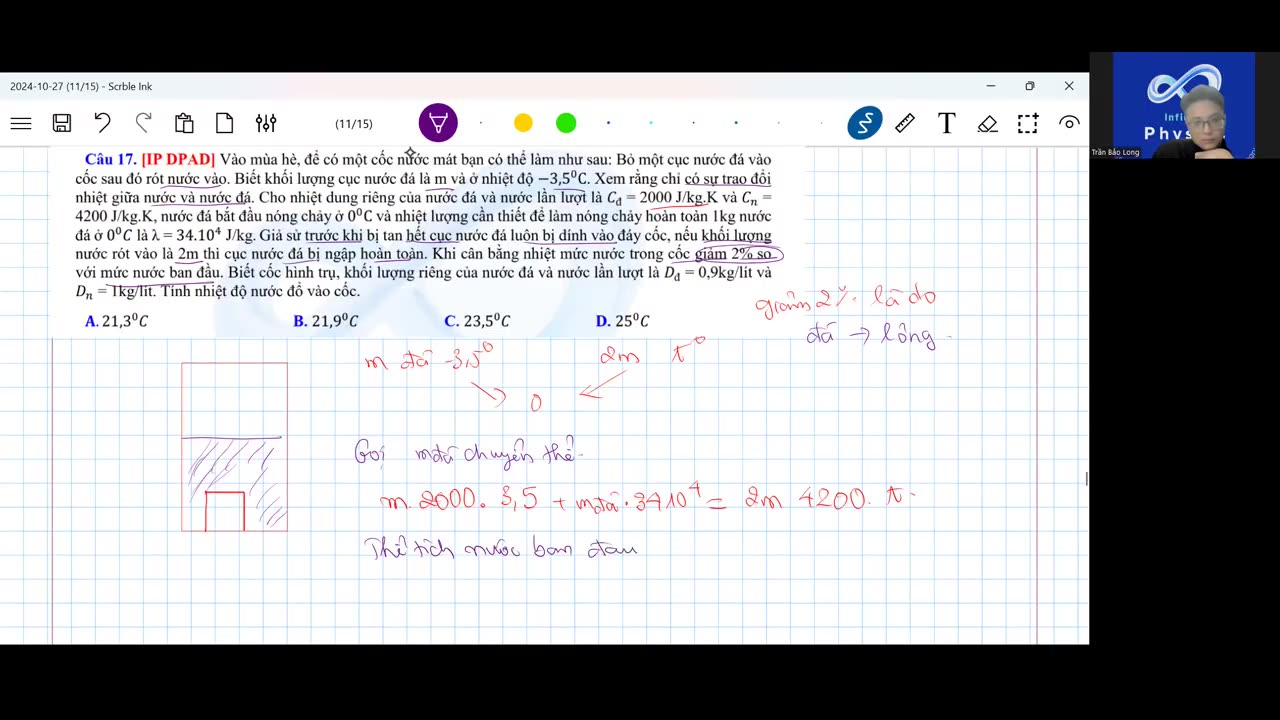 2024-10-27 (11/15) - Scrble Ink
(11/15)
T
Infin
Physics
Trần Bảo Long
Câu 17. [IP DPAD] Vào mùa hè, để có một cốc nước mát bạn có thể làm như sau: Bỏ một cục nước đá vào
cốc sau đó rót nước vào. Biết khối lượng cục nước đá là m và ở nhiệt độ −3,5⁰C. Xem rằng chỉ có sự trao đổi
nhiệt giữa nước và nước đá. Cho nhiệt dung riêng của nước đá và nước lần lượt là Cđ = 2000 J/kg.K và Cn =
4200 J/kg.K, nước đá bắt đầu nóng chảy ở 0⁰C và nhiệt lượng cần thiết để làm nóng chảy hoàn toàn 1kg nước
đá ở 0⁰C là λ = 34.10⁴ J/kg. Giả sử trước khi bị tan hết cục nước đá luôn bị dính vào đáy cốc, nếu khối lượng
nước rót vào là 2m thì cục nước đá bị ngập hoàn toàn. Khi cân bằng nhiệt mức nước trong cốc giảm 2% so
với mức nước ban đầu. Biết cốc hình trụ, khối lượng riêng của nước đá và nước lần lượt là Dđ = 0,9kg/lít và
Dn = 1kg/lít. Tính nhiệt độ nước đổ vào cốc.
A. 21,3⁰C B. 21,9⁰C C. 23,5⁰C D. 25⁰C
giảm 2% là do
đá → lỏng
m đá -3,5⁰ 2m t⁰
0
Gọi mđá chuyển thể.
m.2000.3,5 + mđá.34.10⁴ = 2m 4200. t.
Thể tích nước ban đầu